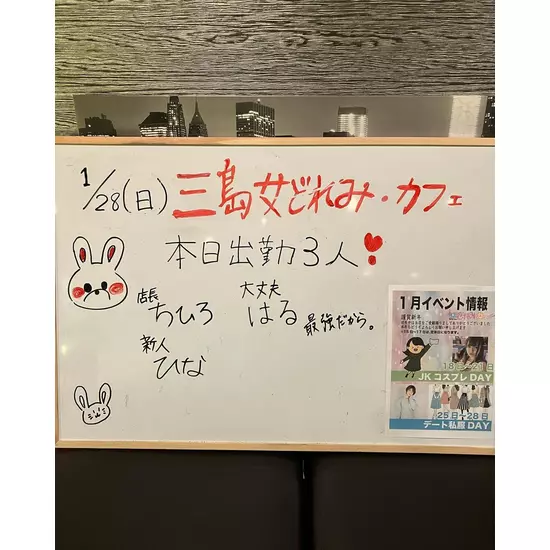 1/28(日) 三島女どれみ・カフェ
本日出勤3人
店長 ちひろ
大丈夫 はる 最強だから。
新人 ひな
1月イベント情報
謹賀新年
18日〜21日
JKコスプレDAY
25日〜28日
デート私服DAY